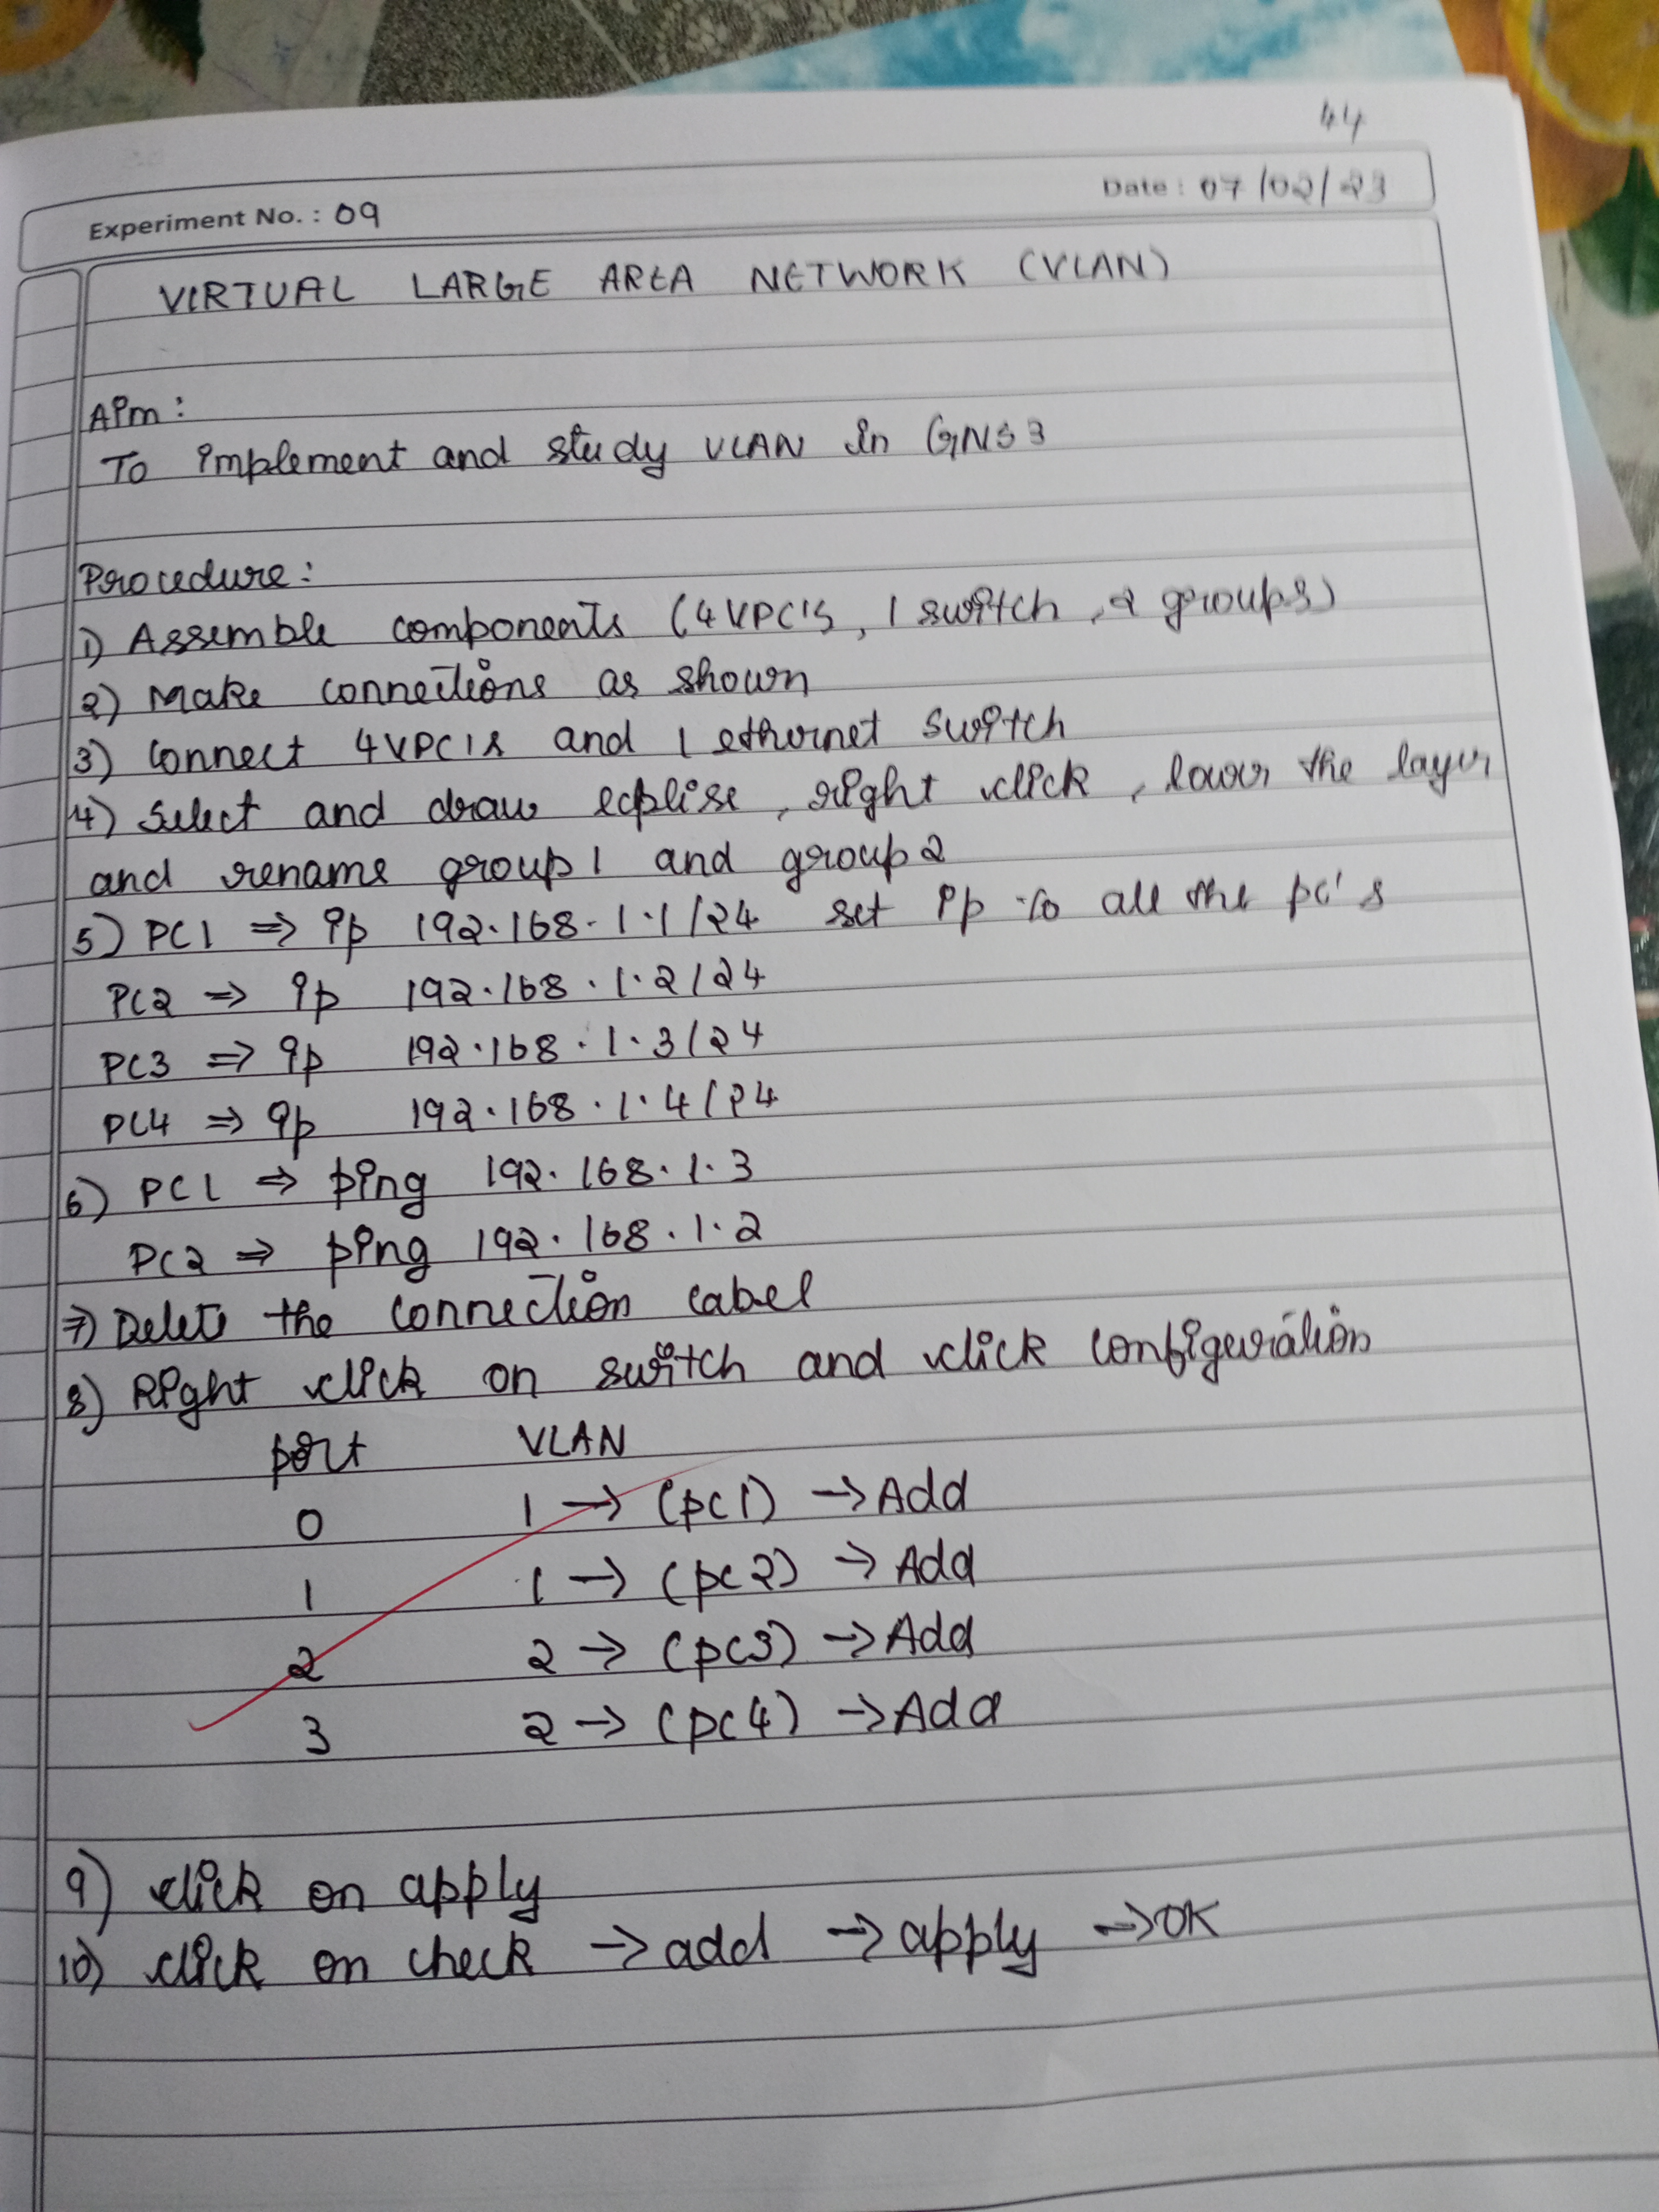 44
Experiment No. : 09
Date : 07/02/23
VIRTUAL LARGE AREA NETWORK (VLAN)
Aim :
To implement and study VLAN in GNS3
Procedure :
1) Assemble components (4 VPC's, 1 switch, 2 groups)
2) Make connections as shown
3) Connect 4 VPC's and 1 ethernet switch
4) Select and draw ecplise, right click, lower the layer
and rename group 1 and group 2
5) PC1 => ip 192.168.1.1/24 set ip to all the pc's
PC2 => ip 192.168.1.2/24
PC3 => ip 192.168.1.3/24
PC4 => ip 192.168.1.4/24
6) PC1 => ping 192.168.1.3
PC2 => ping 192.168.1.2
7) Delete the connection cabel
8) Right click on switch and click configuration
port VLAN
0 1 → (pc1) → Add
1 1 → (pc2) → Add
2 2 → (pc3) → Add
3 2 → (pc4) → Add
9) click on apply
10) click on check → add → apply → OK